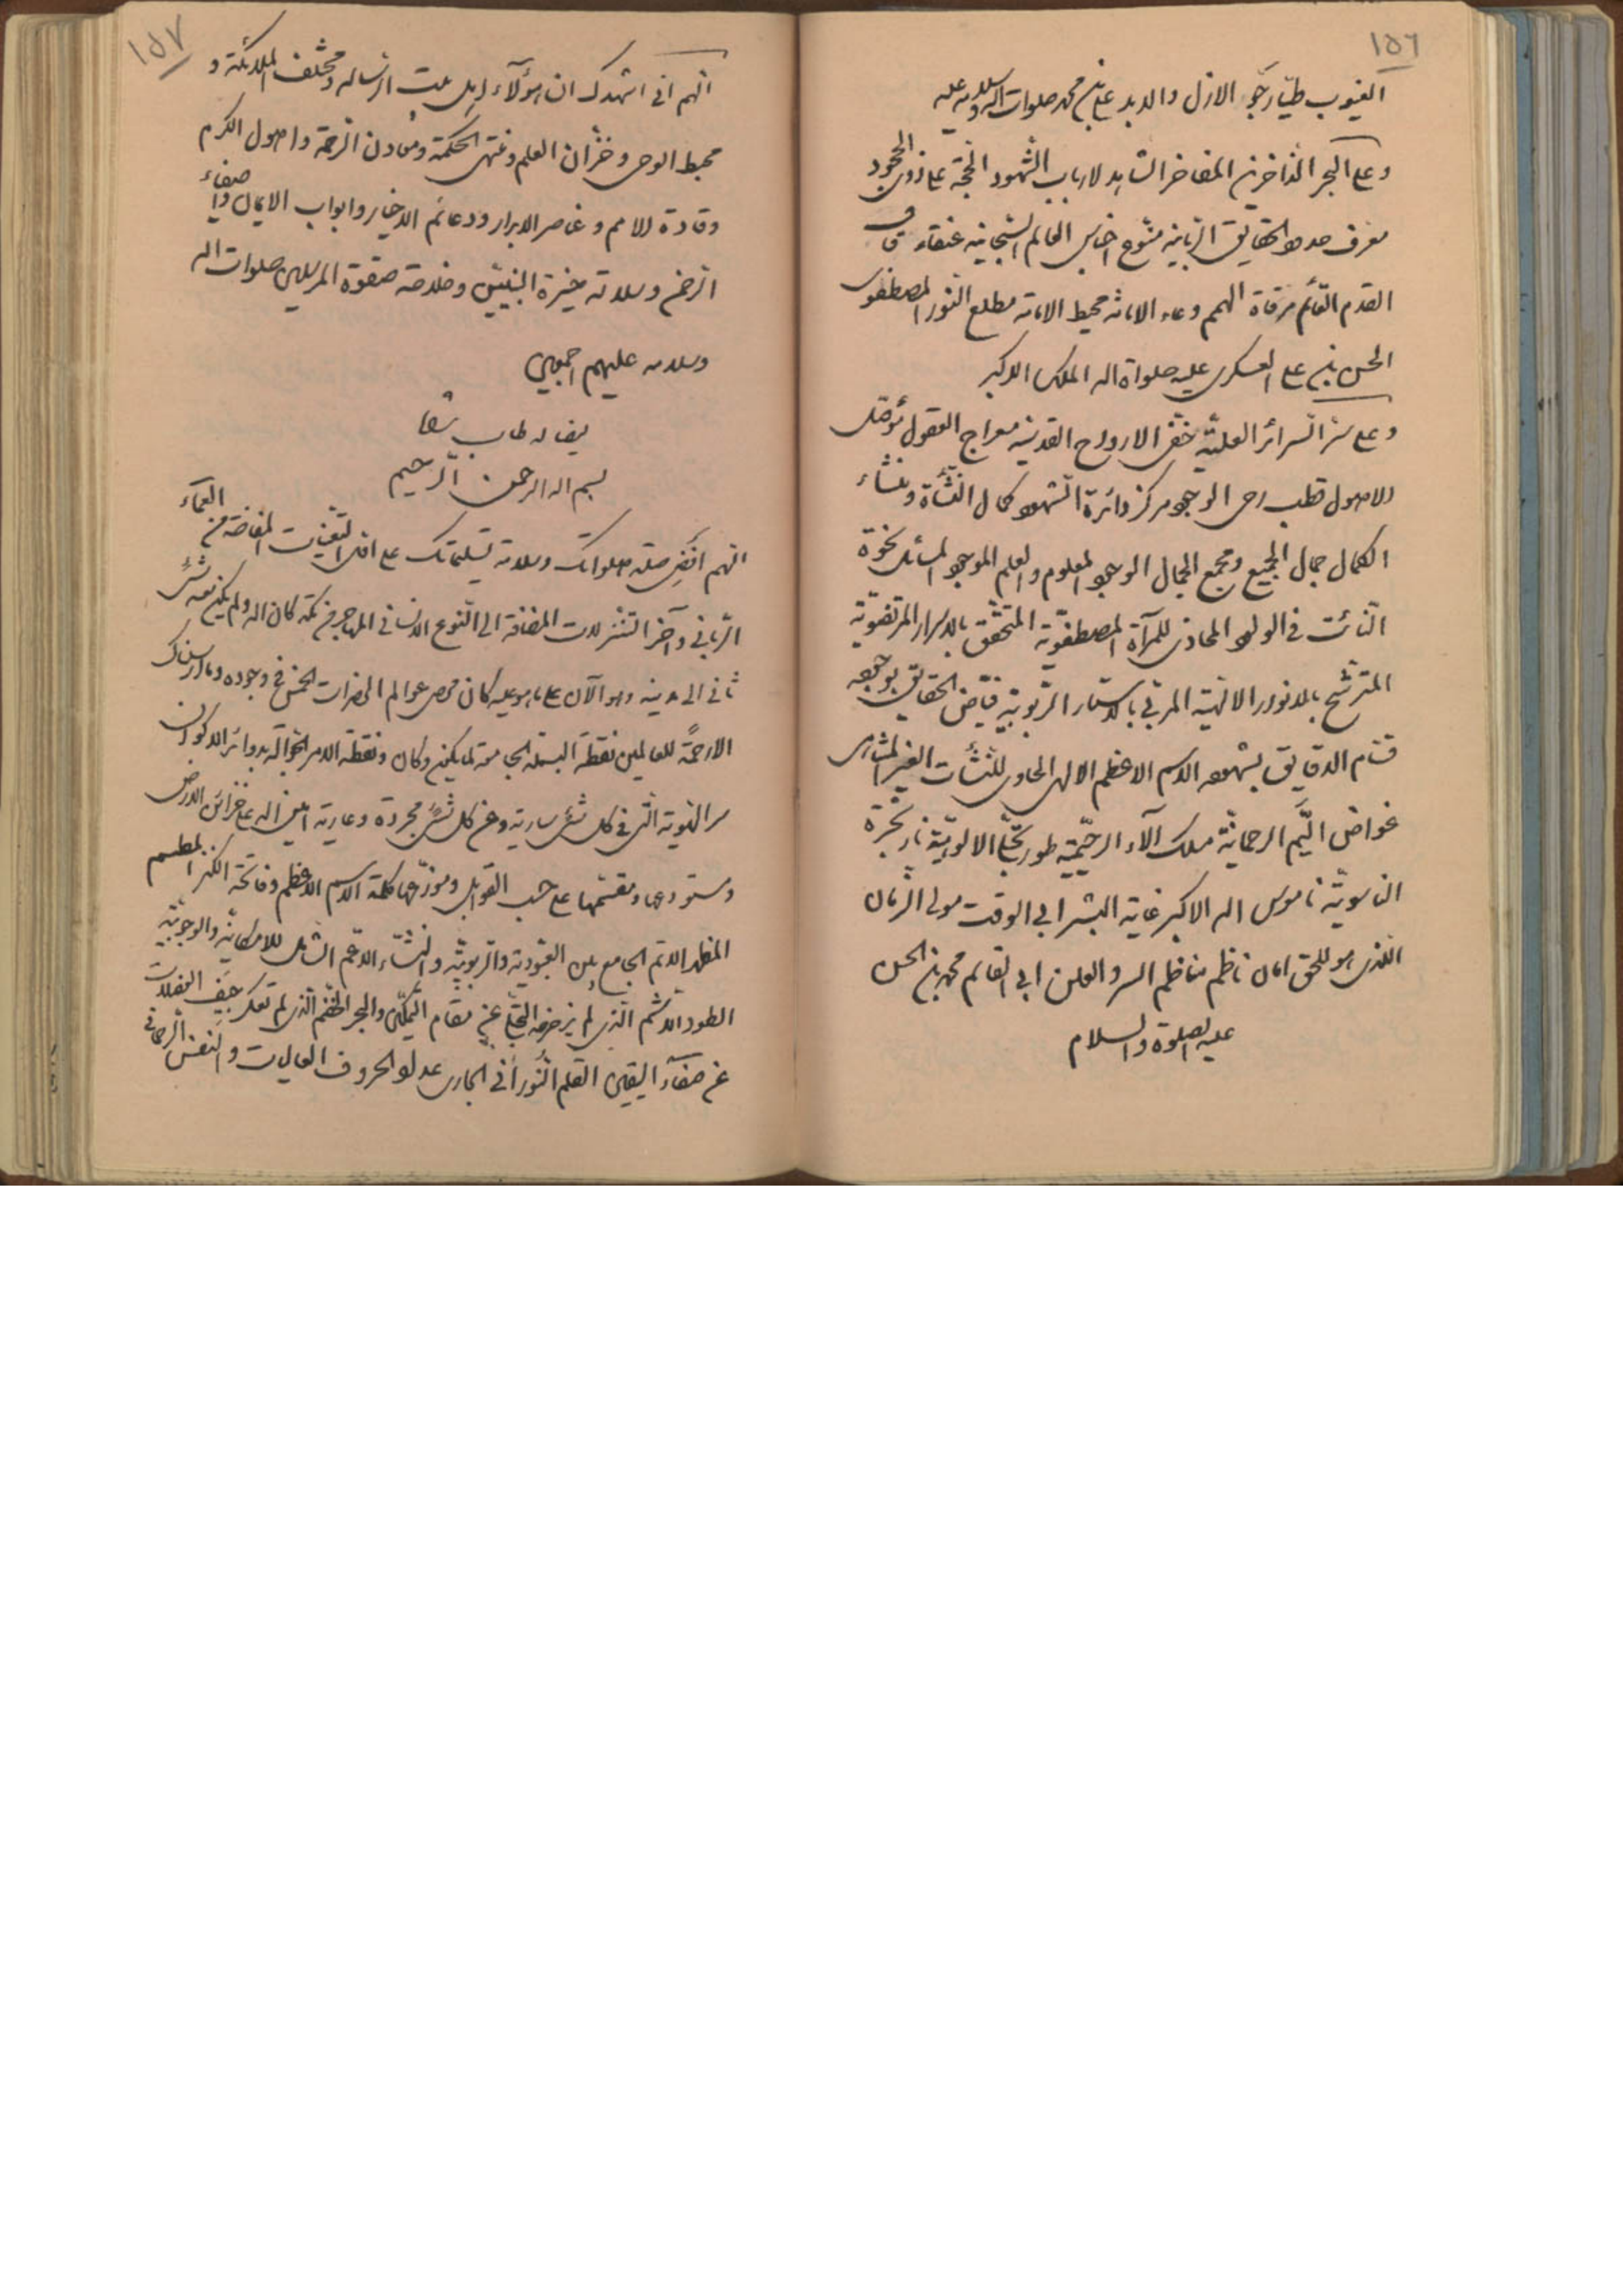 ١٥٦
الغیوب طیّار جوّ الازل والابد علی بن محمد صلوات الله وسلامه علیه
وعلی البحر الذاخر زین المفاخر الشاهد لارباب الشهود الحجة علی ذوی الجحود
معرف حدود الحقایق الربانیة منوع اجناس العالم السبحانیه عنقاء قاف
القدم القائم مرقاة الهمم وعاء الامانه محیط الامامة مطلع النور المصطفوی
الحسن بن علی العسکری علیه صلواة الله الملک الاکبر
وعلی سرّ السرائر العلیّة خفی الارواح القدسیة معراج العقول موصل
الاصول قطب رحی الوجود مرکز دائرة الشهود کمال النشأة ومنشاء
الکمال جمال الجمیع ومجمع الجمال الوجود المعلوم والعلم الموجود المسائل نحوه
الثابت فی الولود المحاذی للمرآة المصطفویة المتحقق بالاسرار المرتضویّة
المترشح بالانوار الالهیة المربّی بالاستار الربوبیة فیّاض الحقایق بوجوده
قسّام الدقایق بشهوده الاسم الاعظم الالهی الحاوی للنشآت الغیر المتناهی
غواص الیّم الرحمانیّة مسلک آلاء الرحیمیّة طور تجلّی الالوهیّة نار شجرة
الناسوتیّة ناموس الله الاکبر غایة البشر ابی الوقت مولی الزمان
اللذی هو للحق امان ناظم مناظم السر والعلن ابی القاسم محمد بن الحسن
علیه الصلوة والسلام
١٥٧
اللهم انی اشهدک ان هؤلآء اهل بیت الرساله ومختلف الملائکة و
مهبط الوحی وخزّان العلم ومنتهی الحکمة ومعادن الرحمة واصول الکرم
وقادة الامم وعناصر الابرار ودعائم الاخیار وابواب الایمان وامناء
الرحمن وسلالة خیرة النبیین وخلاصة صفوة المرسلین صلوات الله
وسلامه علیهم اجمعین
ایضا له طاب
بسم الله الرحمن الرحیم
اللهم افض صلة صلواتک وسلامة تسلیماتک علی اول التعینات المفاضة من العماء
الربانی وآخر التنزلات المضافة الی النوع الانسانی المهاجر من مکة کان الله ولم یکن معه شئ
ثانی الی مدینه وهو الآن علی ما هو علیه کان محصی عوالم الحضرات الخمس فی وجوده وما ارسلناک
الا رحمة للعالمین نقطة البسملة الجامعة لما یکون وکان ونقطة الامر الجوالة بدوائر الاکوان
سر الهویة التی فی کل شئ ساریة وعن کل شئ مجردة وعاریة امین الله علی خزائن الارض
ومستودعها ومقسّمها علی حسب القوابل وموزّعها کلمة الاسم الاعظم وفاتحة الکنز المطلسم
المظهر الاتم الجامع بین العبودیة والربوبیّة والنشاء الاعم الشامل للامکانیة والوجوبیّة
الطود الاشم الذی لم یزحزحه التجلی عن مقام التمکین والبحر الخضم الذی لم تعکره جیف الغفلات
عن صفآء الیقین القلم النورانی الجاری بمداد الحروف العالیات والنفس الرحمانی